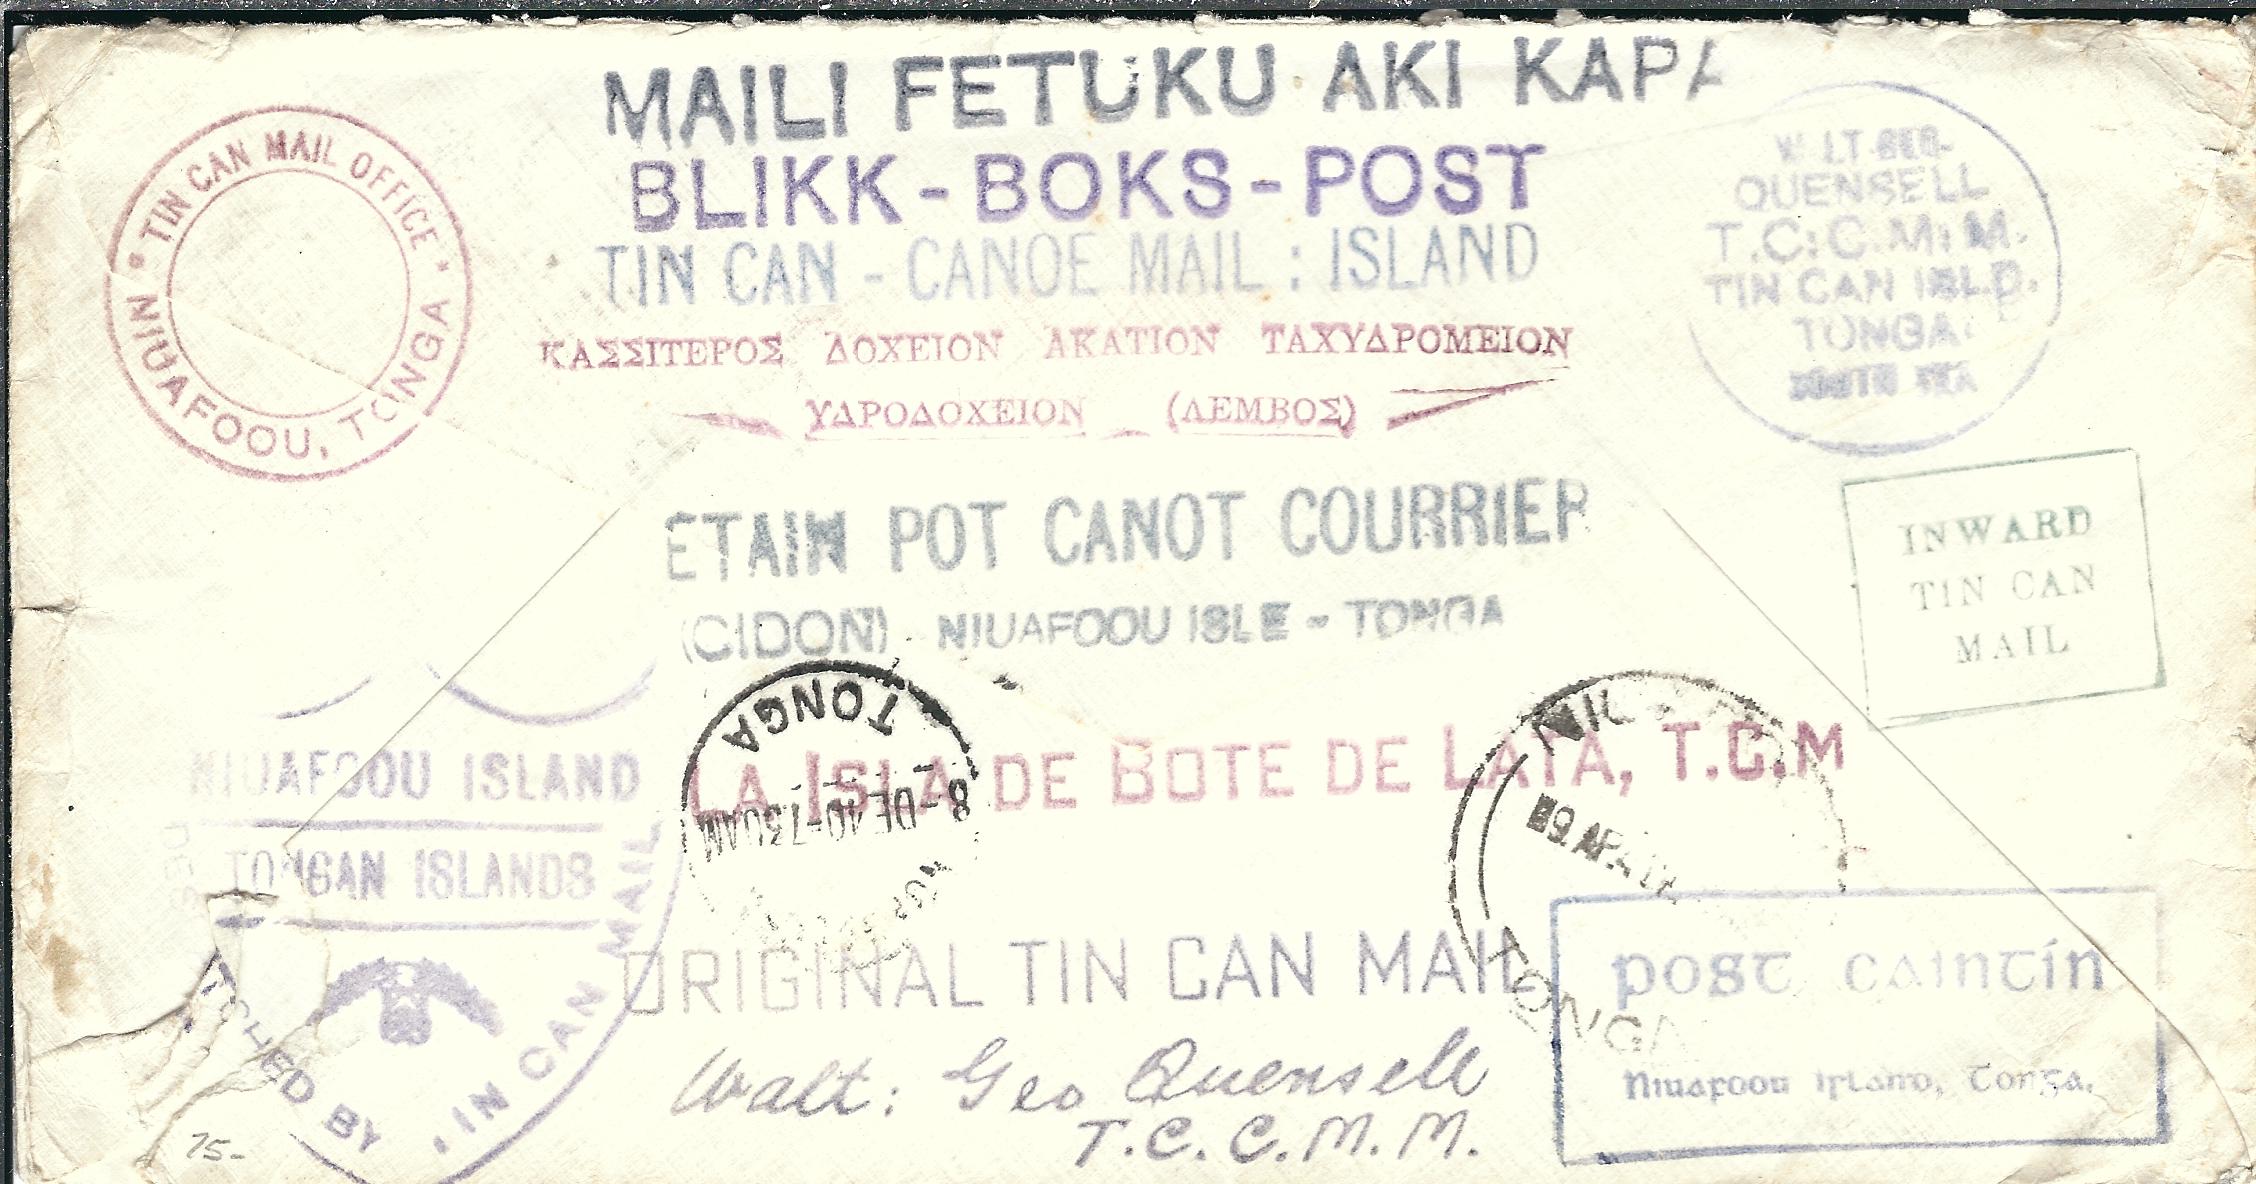 MAILI FETUKU AKI KAPA
BLIKK-BOKS-POST
TIN CAN - CANOE MAIL : ISLAND
ΚΑΣΣΙΤΕΡΟΣ ΔΟΧΕΙΟΝ ΑΚΑΤΙΟΝ ΤΑΧΥΔΡΟΜΕΙΟΝ
ΥΔΡΟΔΟΧΕΙΟΝ (ΛΕΜΒΟΣ)
TIN CAN MAIL OFFICE
NIUAFOOU, TONGA
QUENSELL
T.C.C.M.M.
TIN CAN ISLD.
TONGA
ETAIN POT CANOT COURRIER
(CIDON) NIUAFOOU ISLE - TONGA
INWARD
TIN CAN
MAIL
LA ISLA DE BOTE DE LATA, T.C.M
TONGA
8-DE 40-730AM
TONGA
NIUAFOOU ISLAND
TONGAN ISLANDS
BY
TIN CAN MAIL
ORIGINAL TIN CAN MAIL
Walt: Geo Quensell
T.C.C.M.M.
post caintín
Niuafoou Island, Tonga.
75-